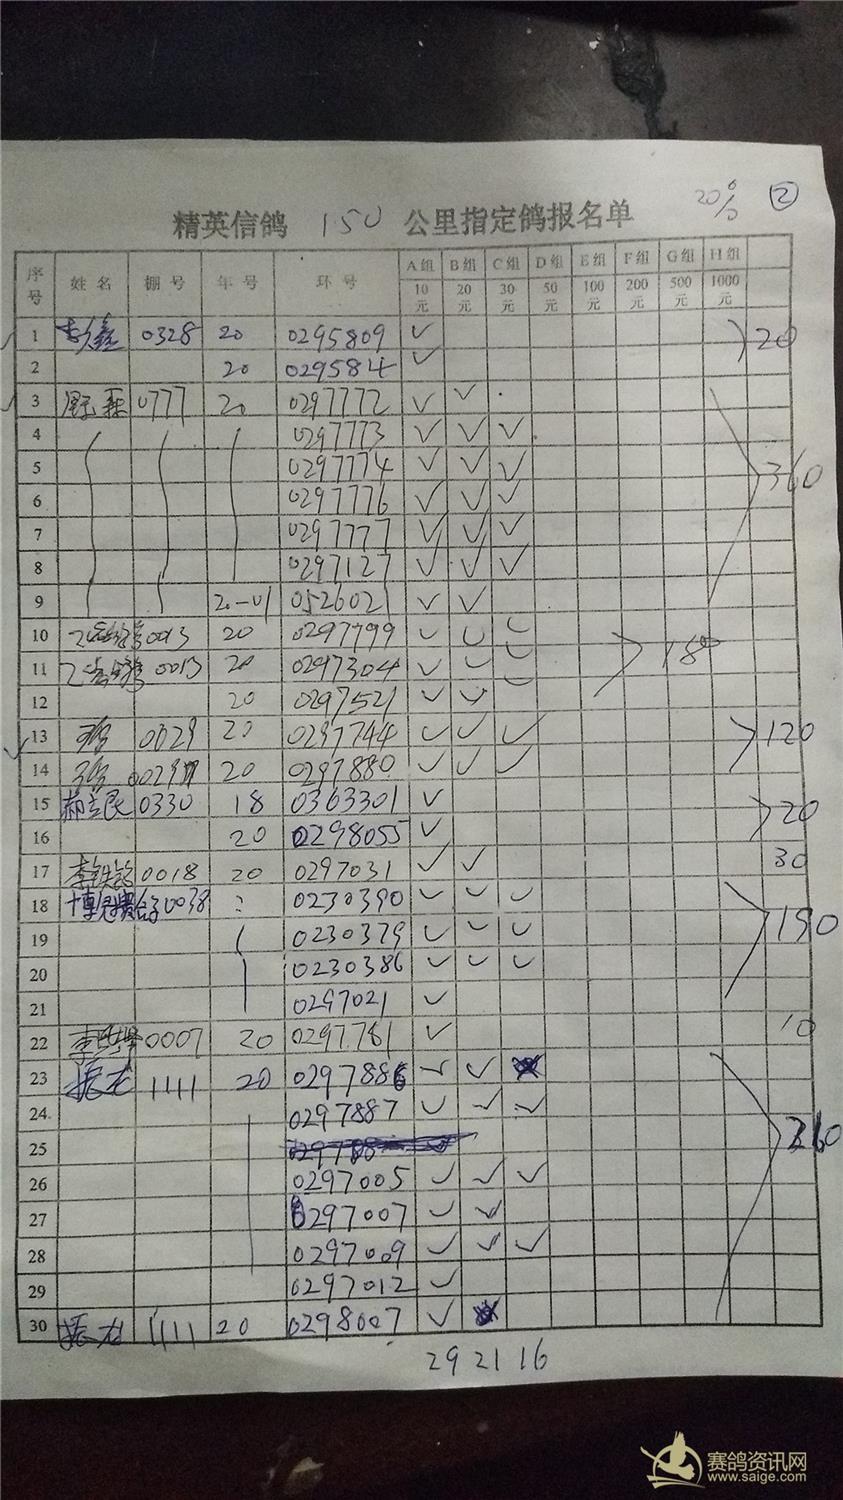 20 6/3 ②
精英信鸽 150 公里指定鸽报名单
序号 姓名 棚号 年号 环号 A组 B组 C组 D组 E组 F组 G组 H组
10元 20元 30元 50元 100元 200元 500元 1000元
1 0328 20 0295809 ✓ 20
2 20 0295814 ✓
3 0777 20 0297772 ✓ ✓
4 0297773 ✓ ✓ ✓
5 0297774 ✓ ✓ ✓ 360
6 0297776 ✓ ✓ ✓
7 0297777 ✓ ✓ ✓
8 0297127 ✓ ✓ ✓
9 20-01 0526021 ✓ ✓
10 0013 20 0297799 ✓ ✓ ✓
11 0013 20 0297304 ✓ ✓ ✓ 180
12 20 0297521 ✓ ✓ ✓
13 0029 20 0297744 ✓ ✓ ✓ 120
14 0029 20 0297880 ✓ ✓ ✓
15 郝立民 0330 18 0363301 ✓ 20
16 20 0298055 ✓
17 0018 20 0297031 ✓ ✓ 30
18 0038 0230390 ✓ ✓ ✓
19 0230379 ✓ ✓ ✓ 190
20 0230386 ✓ ✓ ✓
21 0297021 ✓
22 0007 20 0297761 ✓ 10
23 振龙 1111 20 0297886 ✓ ✓
24 0297887 ✓ ✓ ✓
25
26 0297005 ✓ ✓ ✓
27 0297007 ✓ ✓
28 0297009 ✓ ✓ ✓
29 0297012 ✓
30 振龙 1111 20 0298007 ✓
29 21 16
赛鸽资讯网
www.saige.com